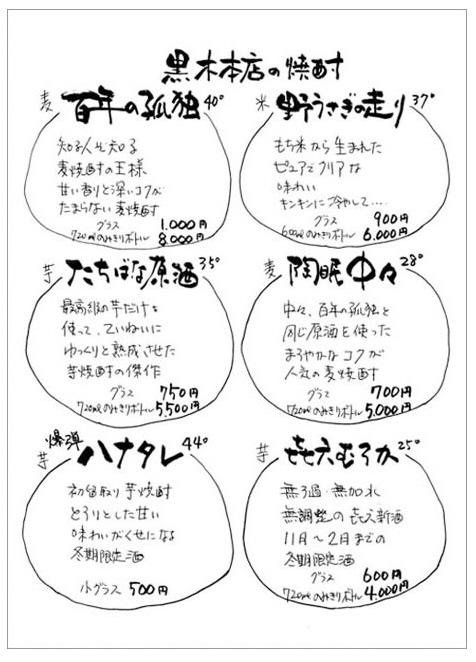 黒木本店の焼酎
麦 百年の孤独 40°
知る人ぞ知る
麦焼酎の王様
甘い香りと深いコクが
たまらない麦焼酎
グラス 1.000円
720mlのみきりボトル 8.000円
米 野うさぎの走り 37°
もち米から生まれた
ピュアでクリアな
味わい
キンキンに冷やして....
グラス 900円
600mlのみきりボトル 6.000円
芋 たちばな原酒 35°
最高級の芋だけを
使って、ていねいに
ゆっくりと熟成させた
芋焼酎の傑作
グラス 750円
720mlのみきりボトル 5.500円
麦 陶眠中々 28°
中々、百年の孤独と
同じ原酒を使った
まろやかなコクが
人気の麦焼酎
グラス 700円
720mlのみきりボトル 5.000円
爆弾
芋 ハナタレ 44°
初留取り芋焼酎
とろりとした甘い
味わいがくせになる
冬期限定酒
小グラス 500円
芋 㐂六むろか 25°
無ろ過・無加水
無調整の㐂六新酒
11月〜2月までの
冬期限定酒
グラス 600円
720mlのみきりボトル 4.000円